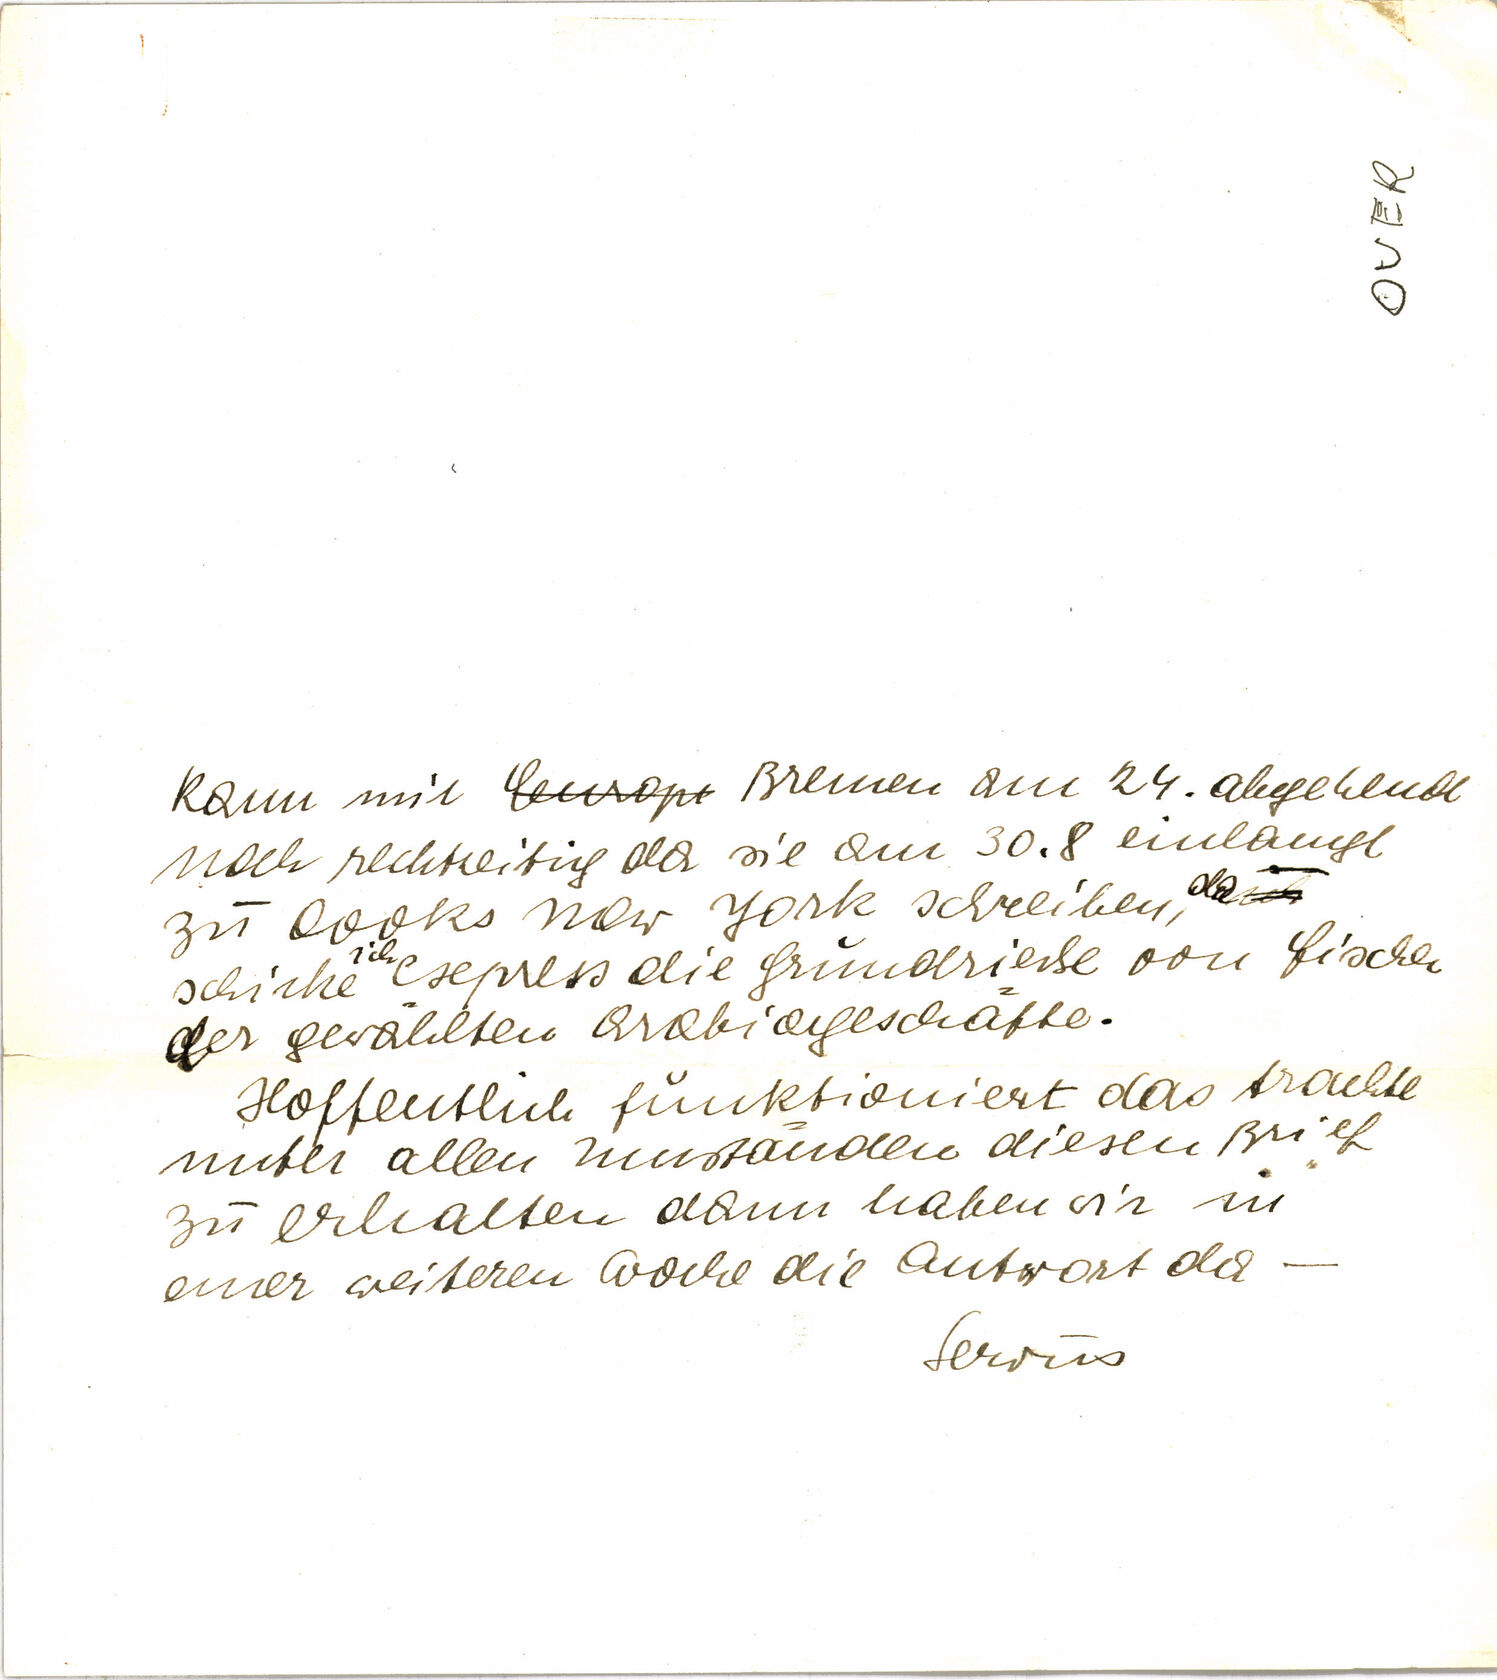 OVER
kann mit Europa Bremen am 24. abgehend
noch rechtzeitig da sie am 30.8 einlangt
zu Cooks New York schreiben, da
schicke ich Express die Grundrieße von Fischer
der gewählten Arabiageschäfte.
Hoffentlich funktioniert das trachte
unter allen Umständen diesen Brief
zu erhalten dann haben wir in
einer weiteren Woche die Antwort da —
Servus